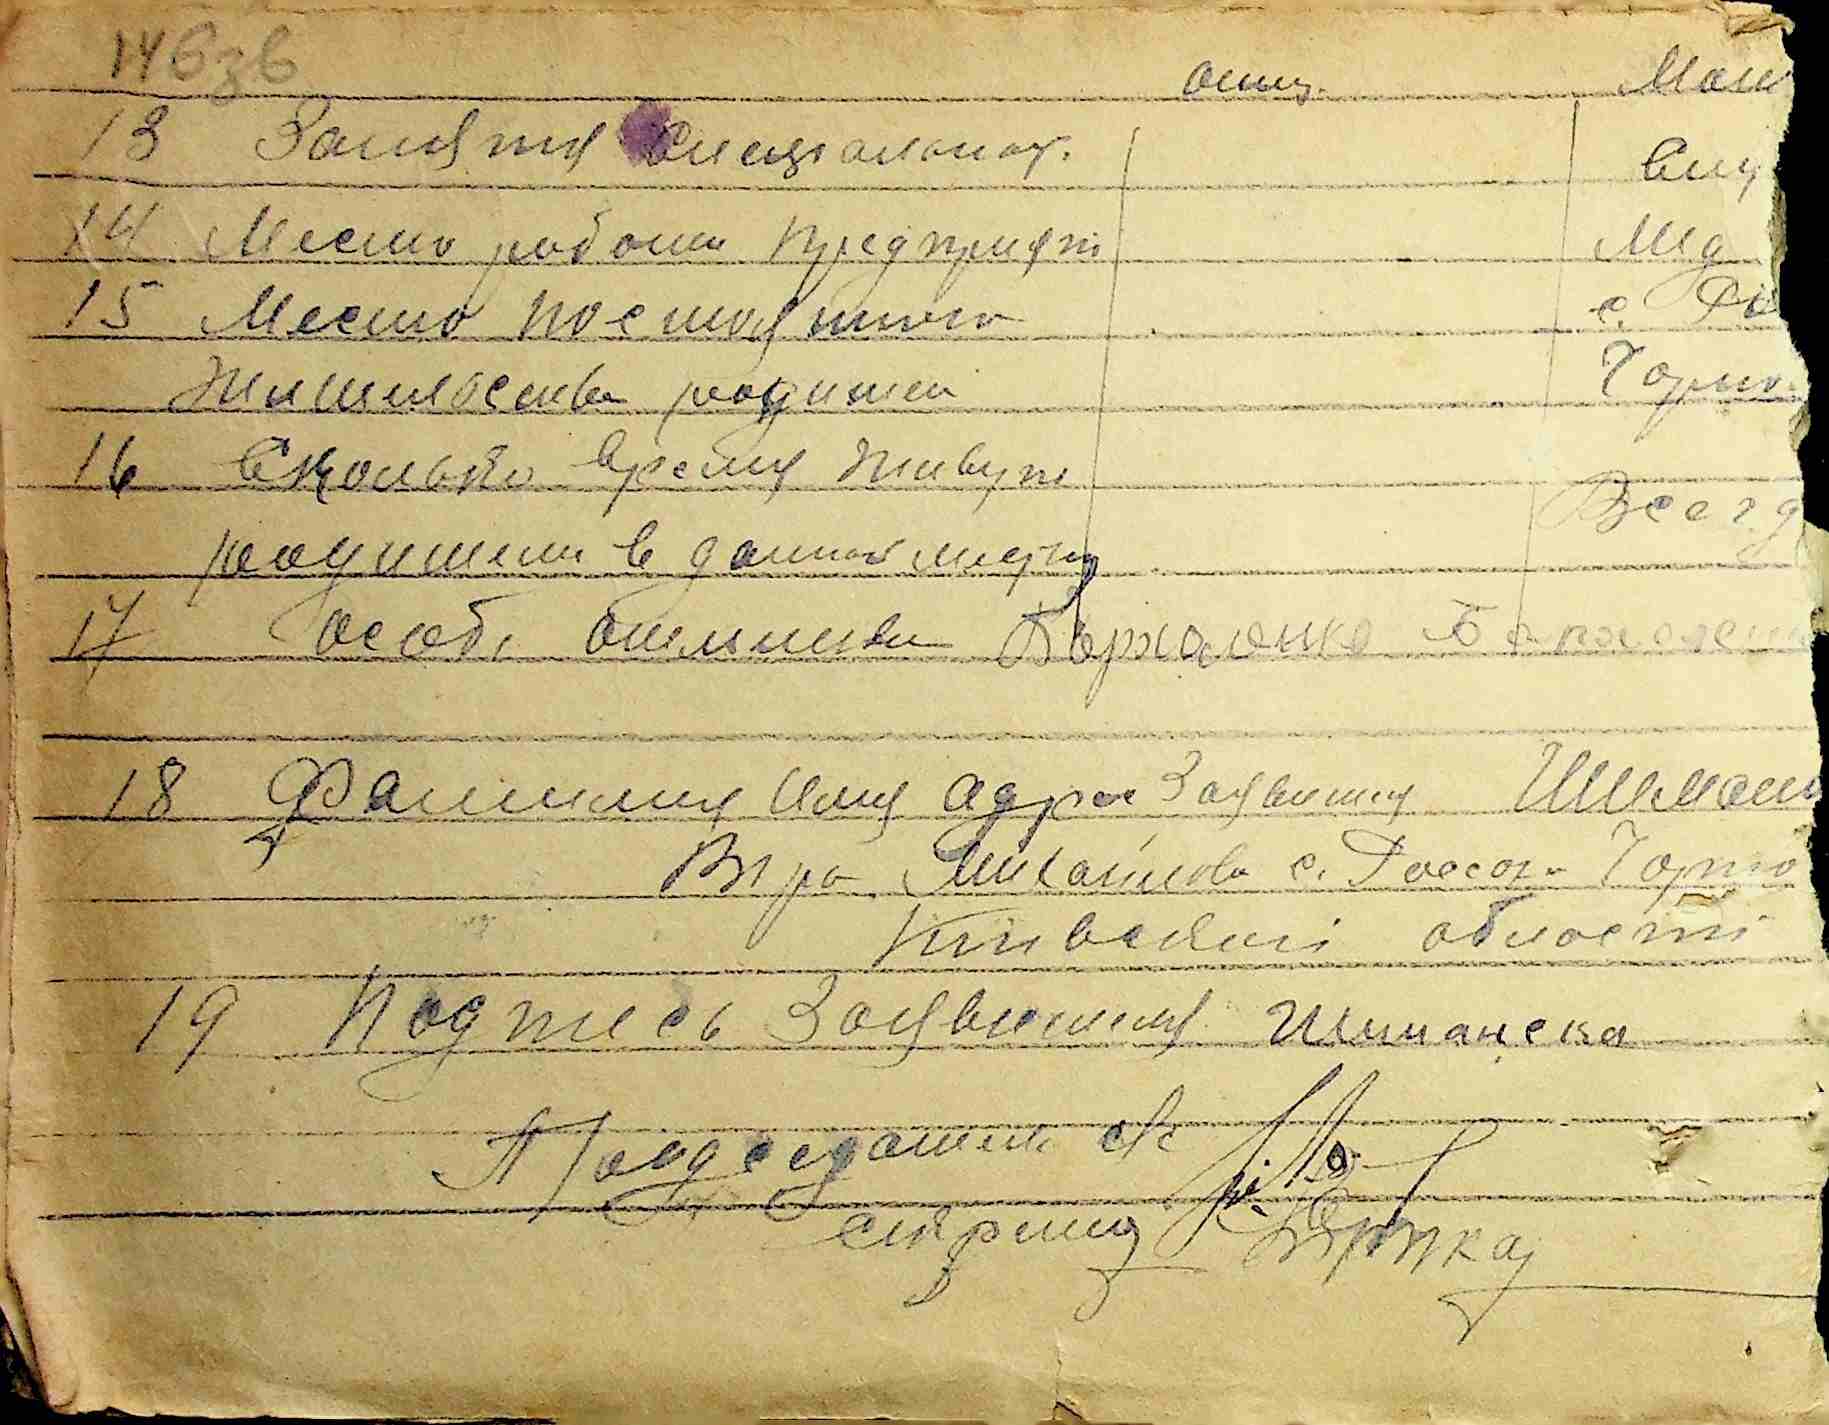 146зв
отец. Мат
13 Занятия специальност.
Слу
14 Место работы предприяті Мед
15 Место постоянного с. Ро
Жительства родители Чорно
16 Сколько время живут
Всегд
родители в данной местну
17 особі отметки
18 Фамилия Имя адрес Заявителя Шиманс
Віра Михайловна с. Россоха Чорно
Київської області
19 Подпись Заявителя Шиманска
Председатель с/с
секретар